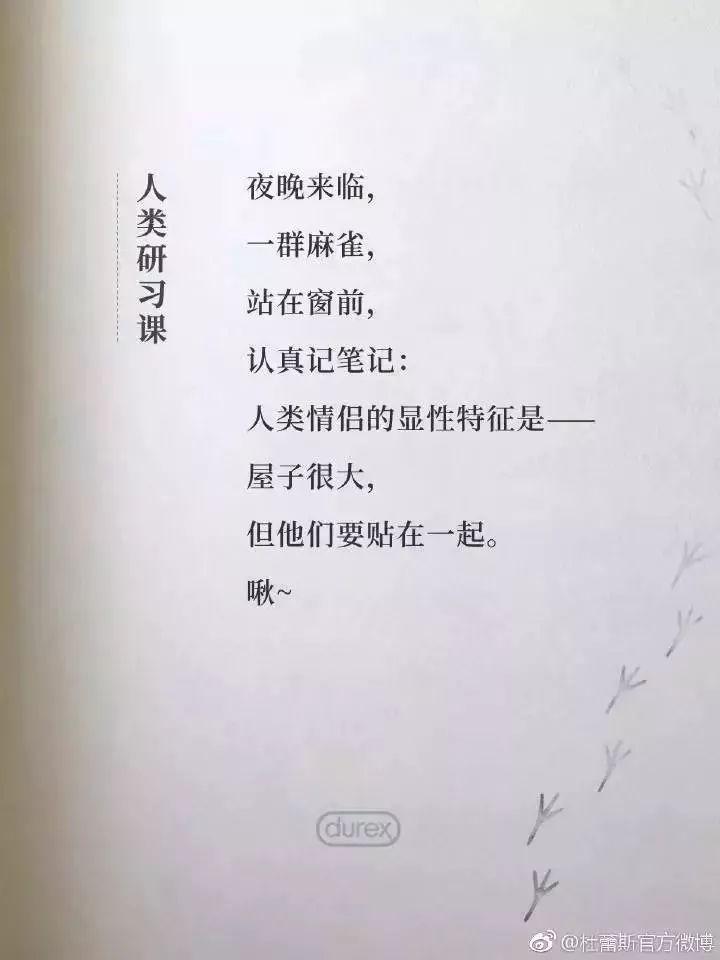 人类研习课
夜晚来临，
一群麻雀，
站在窗前，
认真记笔记：
人类情侣的显性特征是——
屋子很大，
但他们要贴在一起。
啾~
durex
@杜蕾斯官方微博